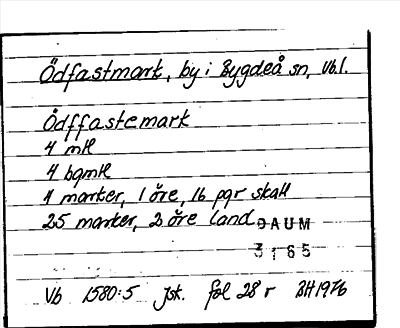 Ödfastmark, by i Bygdeå sn, Vb.l.
Ödffastemark
4 mtl
4 bqmtl
4 marker, 1 öre, 16 pgr skatt
25 marker, 2 öre land
DAUM
3165
Vb 1580:5 Jsk. fol 28 r BH 1976